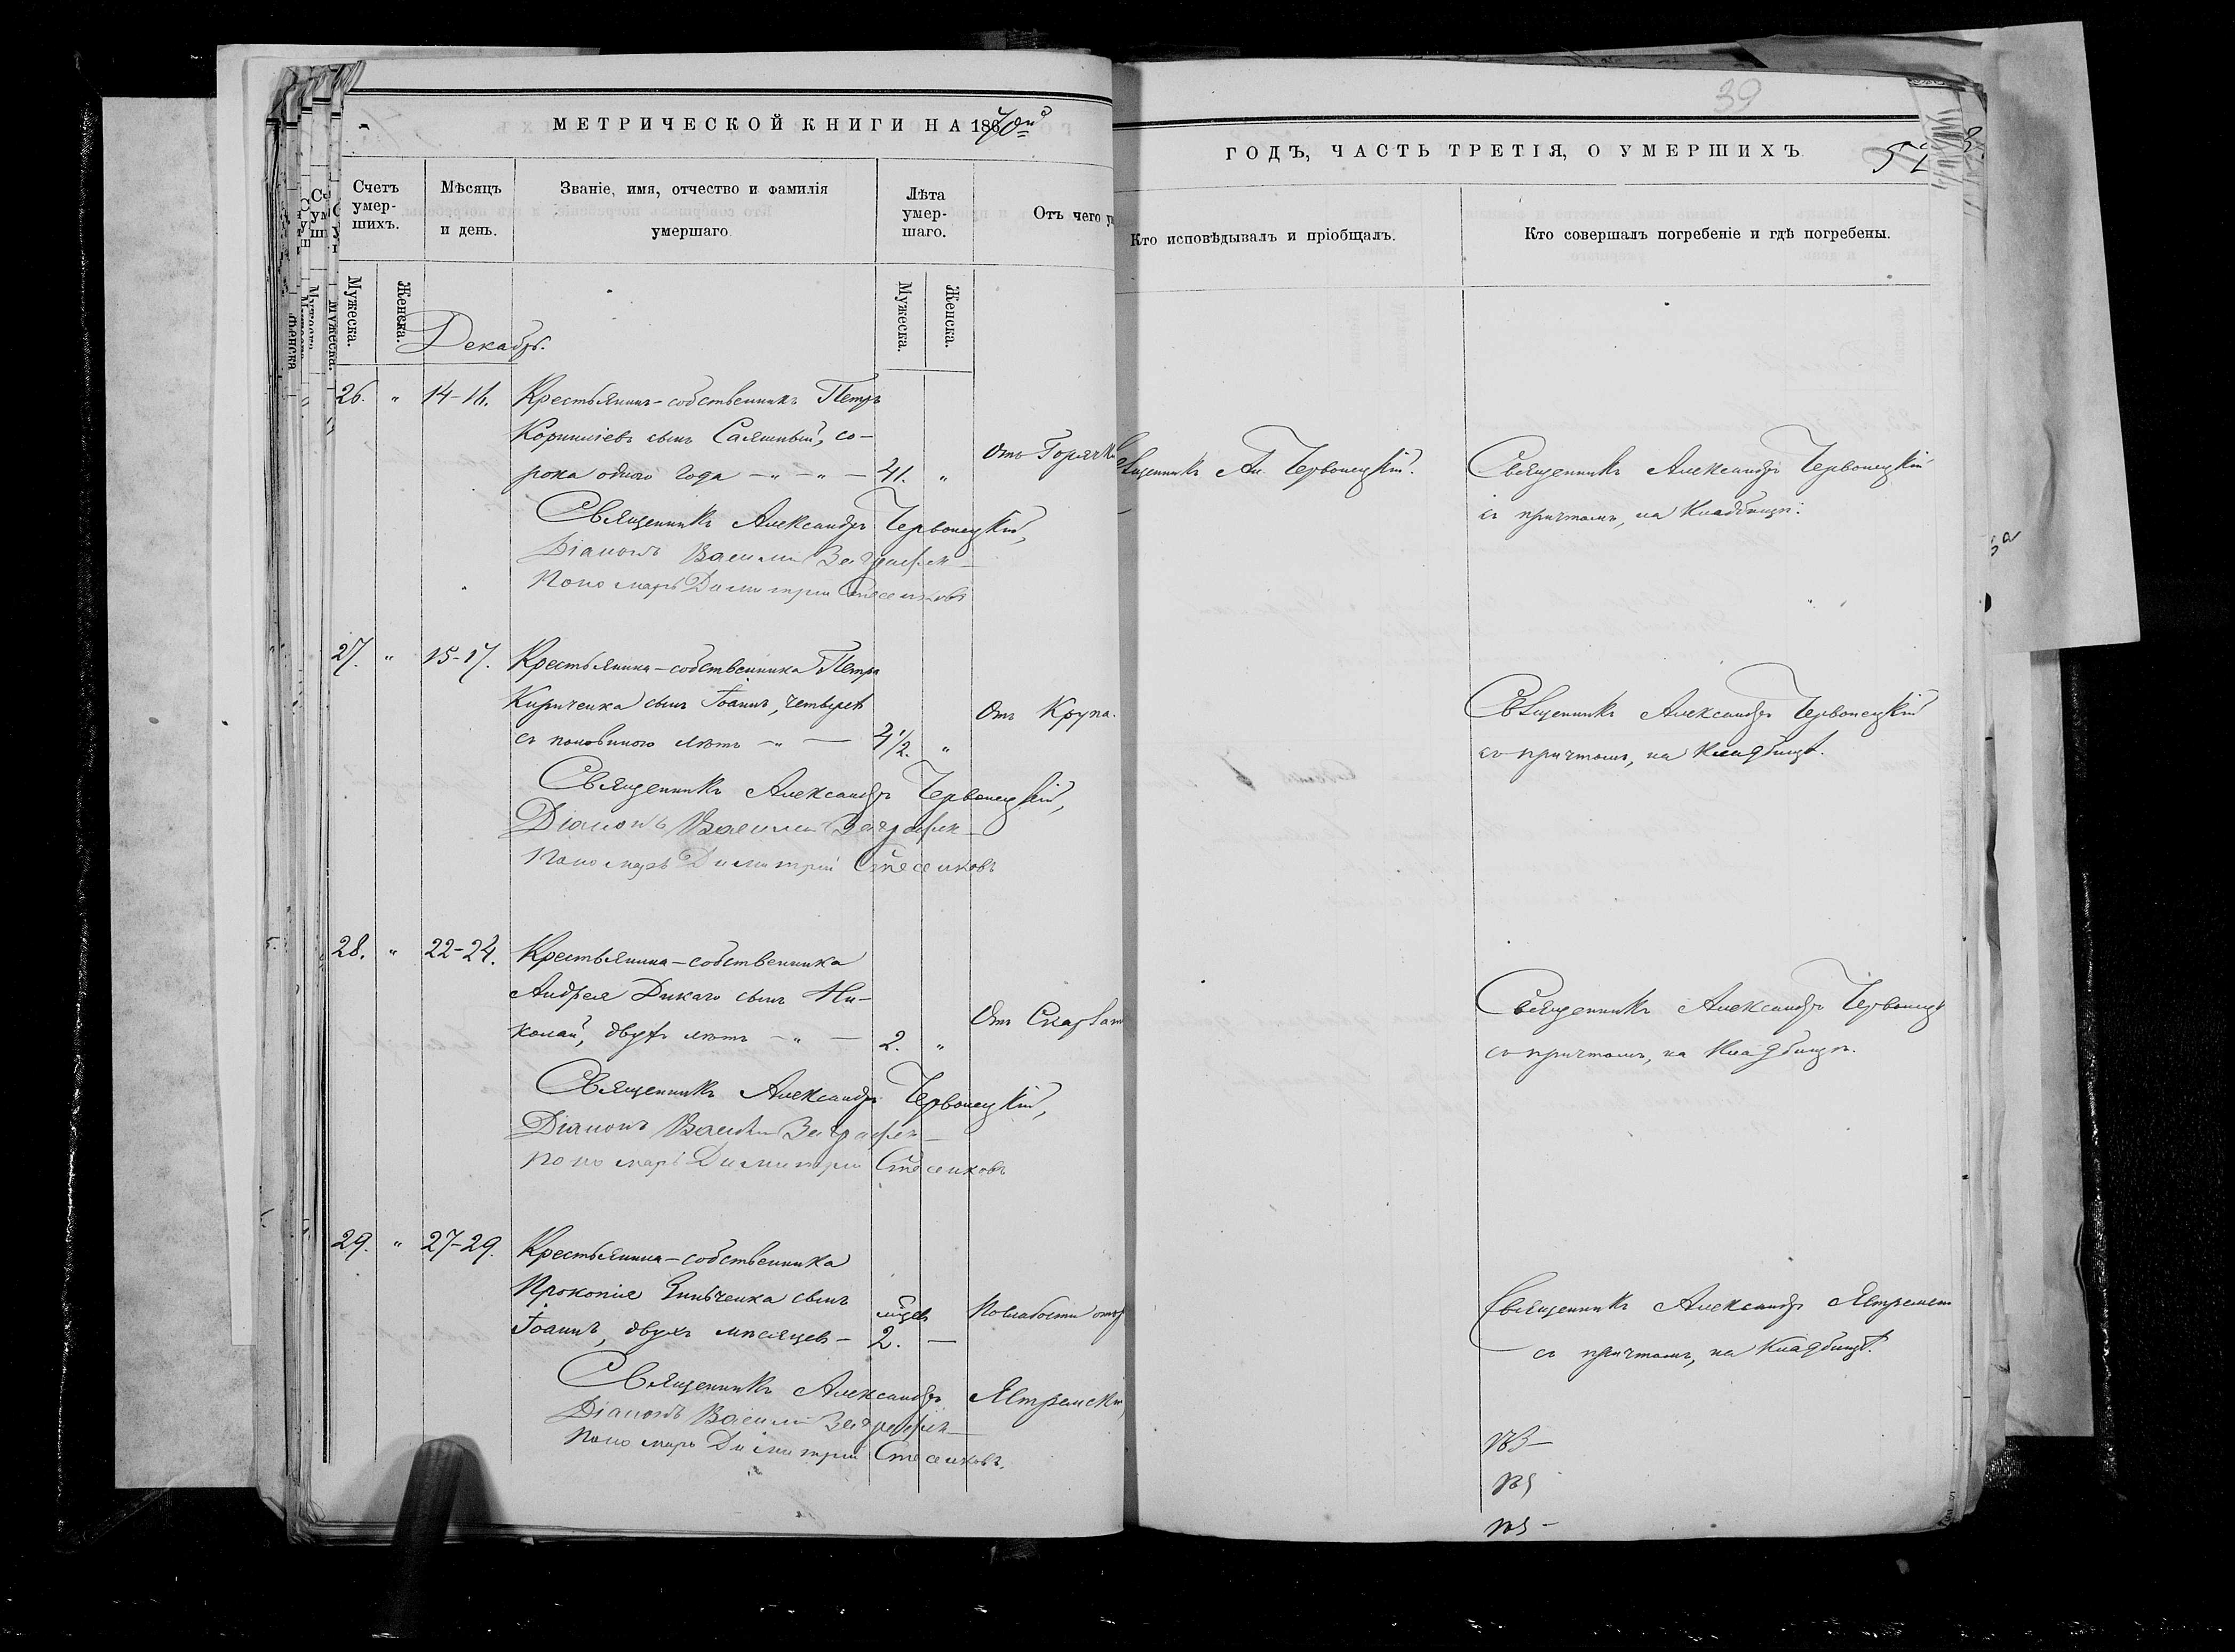 39
МЕТРИЧЕСКОЙ КНИГИ НА 1870й
ГОДЪ, ЧАСТЬ ТРЕТІЯ, О УМЕРШИХЪ
Счетъ умер-шихъ.
Мѣсяцъ и день.
Званіе, имя, отчество и фамилія умершаго
Лѣта умер-шаго.
Отъ чего
Кто исповѣдывалъ и пріобщалъ.
Кто совершалъ погребеніе и гдѣ погребены.
Мужеска.
Женска.
Мужеска.
Женска.
Декабрь.
26. " 14-16. Крестьянинъ-собственникъ Петръ
Корниліевъ сынъ Саляшный, со-
рока одного года — " — " — 41. "
Отъ Горячк
Священникъ Ал. Червонецкій.
Священникъ Александръ Червонецкій
съ причтомъ, на Кладбищѣ.
Священникъ Александръ Червонецкій,
Діаконъ Василій
Пономарь Димитрій
27. " 15-17. Крестьянина-собственника Петра
Кириченка сынъ Іоаннъ, четырехъ
съ половиною лѣтъ — " — 4 1/2. "
Отъ Крупа.
Священникъ Александръ Червонецкій
съ причтомъ, на Кладбищѣ.
Священникъ Александръ Червонецкій,
Діаконъ Василій
Пономарь Димитрій
28. " 22-24. Крестьянина-собственника
Андрея Дикаго сынъ Ни-
колай, двухъ лѣтъ — " — 2. "
Отъ Скарлат
Священникъ Александръ Червонецк
съ причтомъ, на Кладбищѣ.
Священникъ Александръ Червонецкій,
Діаконъ Василій
Пономарь Димитрій
29. " 27-29. Крестьянина-собственника
Прокопія Зинченка сынъ
Іоаннъ, двухъ мѣсяцевъ — мѣсяц 2. —
По слабости
Священникъ Александръ Ястремск
съ причтомъ, на Кладбищѣ.
Священникъ Александръ Ястремскій,
Діаконъ Василій
Пономарь Димитрій